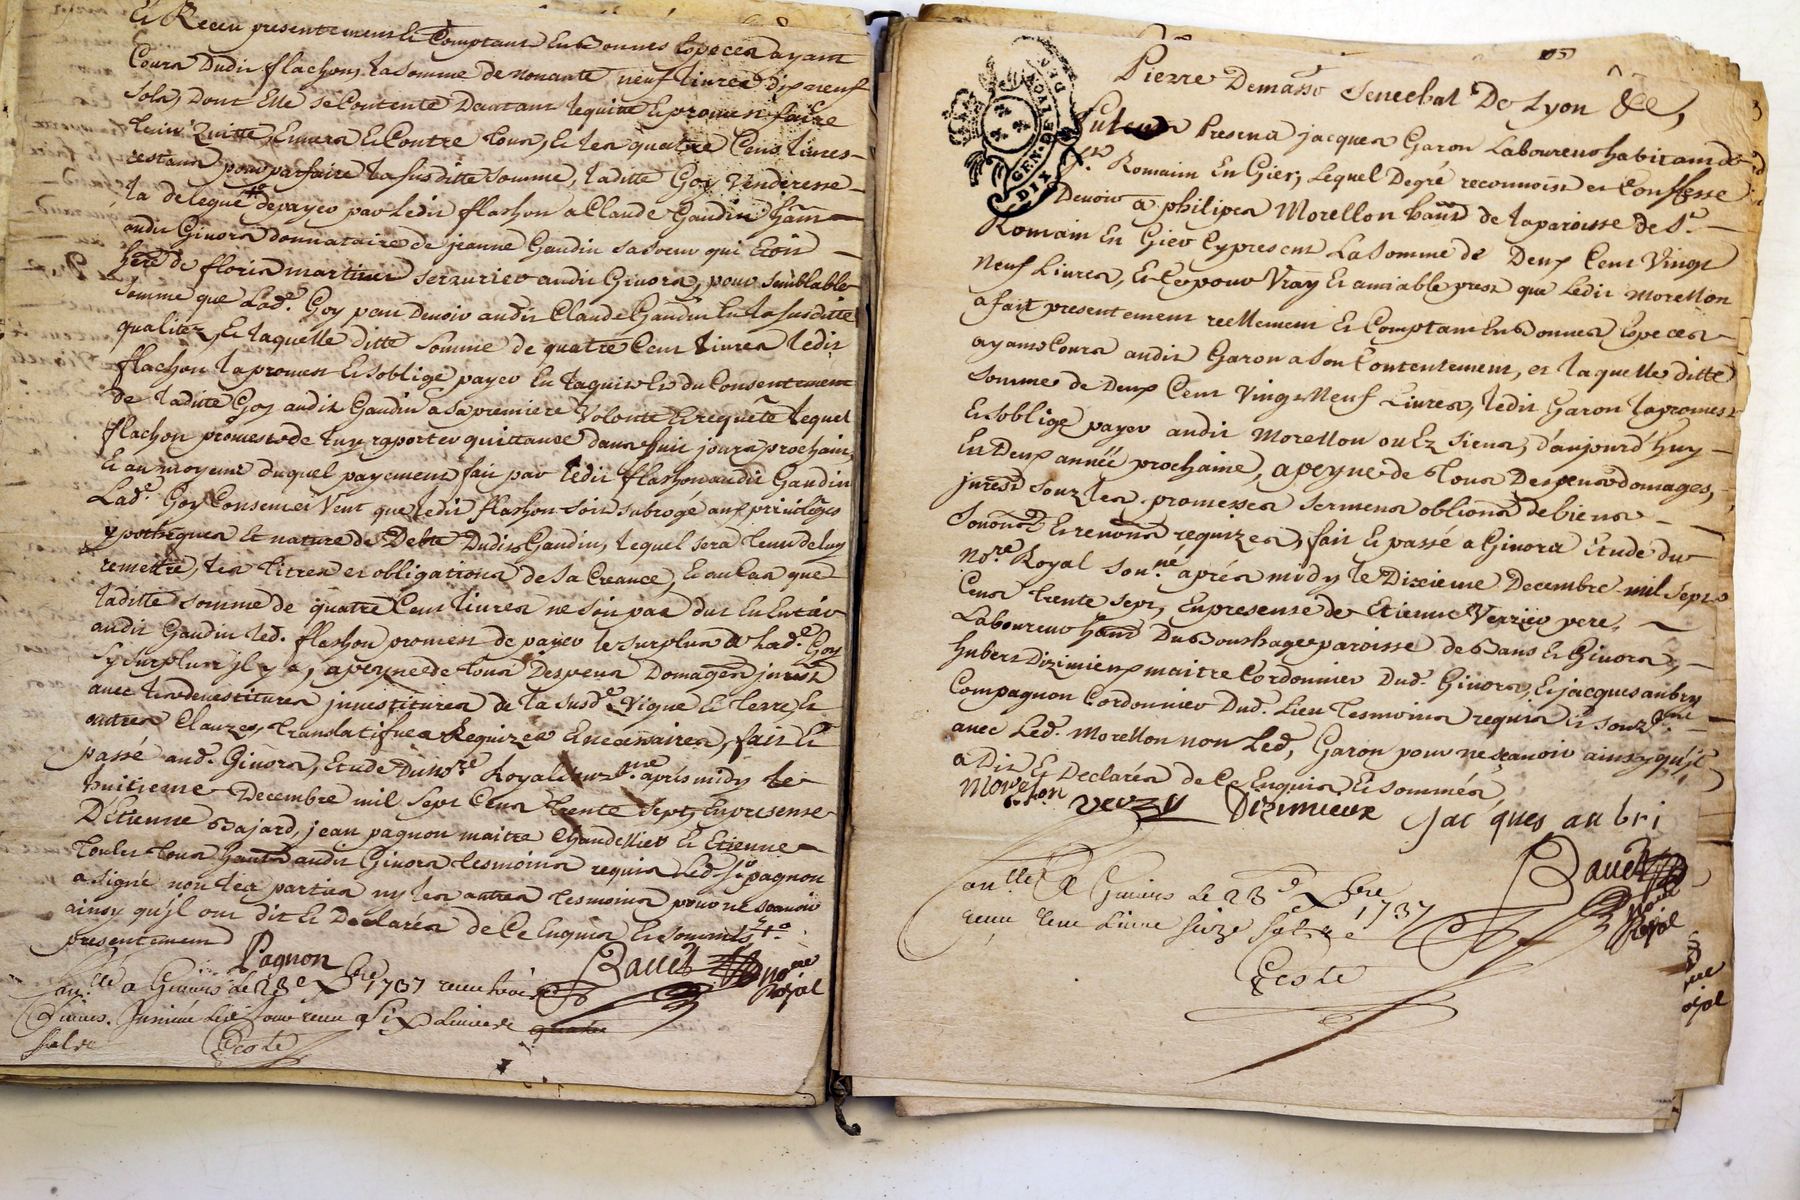 Et Receu presentement Et Comptant En Bonnes Especes ayant
Cours Dudit flachon, La somme de nonante neuf Livres dix neuf
sols, Dont Elle se Contente Dautant Lequitte Et promet faire
tenir Quitte Envers Et Contre tous, Et Les quatre Cens Livres
restans pour parfaire La susditte somme, Laditte Goy Venderesse
La delegué depayer par Ledit flachon a Claude Gaudin
audit Givors donnataire de jeanne Gaudin sa soeur qui Etoit
de floris martinet serrurier audit Givors, pour semblable
somme que Lade. Goy peut Devoir audit Claude Gaudin En La susditte
qualitez, Et Laquelle ditte somme de quatre Cent Livres Ledit
flachon La promet Et soblige payer En Laquit Et du Consentement
de Laditte Goy audit Gaudin a sa premiere Volonté Et requête Lequel
flachon promet de Luy raporter quittance dans huit jours prochain
Et au moyent duquel payement fait par Ledit flachon audit Gaudin
Lade. Goy Consent Et Veut que Ledit flachon soit subrogé aux privileges
ypotheques Et nature de Debte Dudit Gaudin, Lequel sera tenu de Luy
remettre, Les titres et obligations de sa Creance, Et au Cas que
Laditte somme de quatre Cent Livres ne soit pas due En Entier
audit Gaudin Led. flachon promet de payer Le surplus a Lade. Goy
sy surplus jl y a, apeyne de tous Despens Domages
avec Les devestitures jnvestitures de La susde. Vigne Et terre Et
autres Clauzes, translatifves Requizes Et necessaires, fait Et
passé aud. Givors, Etude Du nore. Royal apres midy Le
huitieme Decembre mil sept Cens trente sept, En presense
D'Etienne Bajard, jean pagnon maitre Chandellier Et Etienne
tous audit Givors tesmoins requis Led. pagnon
a signé non Les parties ny Les autres tesmoins pour ne scavoir
ainsy qu'jl ont dit Et Declarés de Ce Enquis Et sommés
presentement
Pagnon
Bauet nore Royal
a Givors Le 23e Xbre 1737 receu
Livres. receu Six Livres
Coste
Pierre Demasso Senechal De Lyon &c,
Present jacques Garon Laboureur habitant de
St. Romain En Gier, Lequel Degré reconnoist et Confesse
Devoir a philipes Morellon de La paroisse de St.
Romain En Gier Cy present La somme de Deux Cent Vingt
neuf Livres, Et Ce pour Vray Et amiable prest que Ledit Morellon
a fait presentement reellement Et Comptant En Bonnes Especes
ayant Cours audit Garon a son Contentement, et Laquelle ditte
somme de Deux Cent Vingt Neuf Livres, Ledit Garon La promet
Et soblige payer audit Morellon ou Ez siens, d'aujourd'huy
En Deux année prochaine, apeyne de tous Despens domages,
souz Les promesses sermens de biens
Et requizes, fait Et passé a Givors Etude du
nore. Royal aprés midy Le Dixieme Decembre mil sept
Cens trente sept, En presense de Etienne Verzier pere,
Laboureur Du Bouchage paroisse de Bans Et Givors,
hubert Dizimieux maitre Cordonnier Dud. Givors, Et jacques aubry
Compagnon Cordonnier Dud. Lieu tesmoins requis Et
avec Led. Morellon non Led. Garon pour ne scavoir ainsy qu'jl
a Dit Et Declarés de Ce Enquis Et sommés
Morelon Dizimieux Jacques aubri
Bauet nore Royal
a Givors Le 23e Xbre 1737
receu Livre Seize
Coste
GEN. DE LYON
DIX DEN